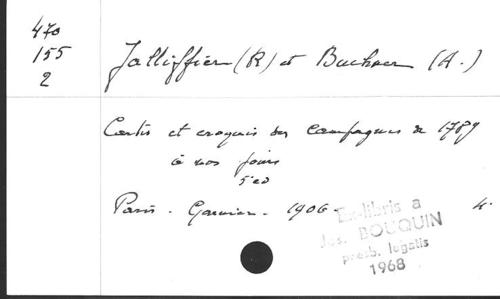 470
155
2
Jalliffier (R) et Buchner (A.)
Cartes et croquis des campagnes de 1789
à nos jours
5e éd
Paris - Garnier - 1906 - 4.
Ex-libris a
Jos. BOUQUIN
presb. legatis
1968